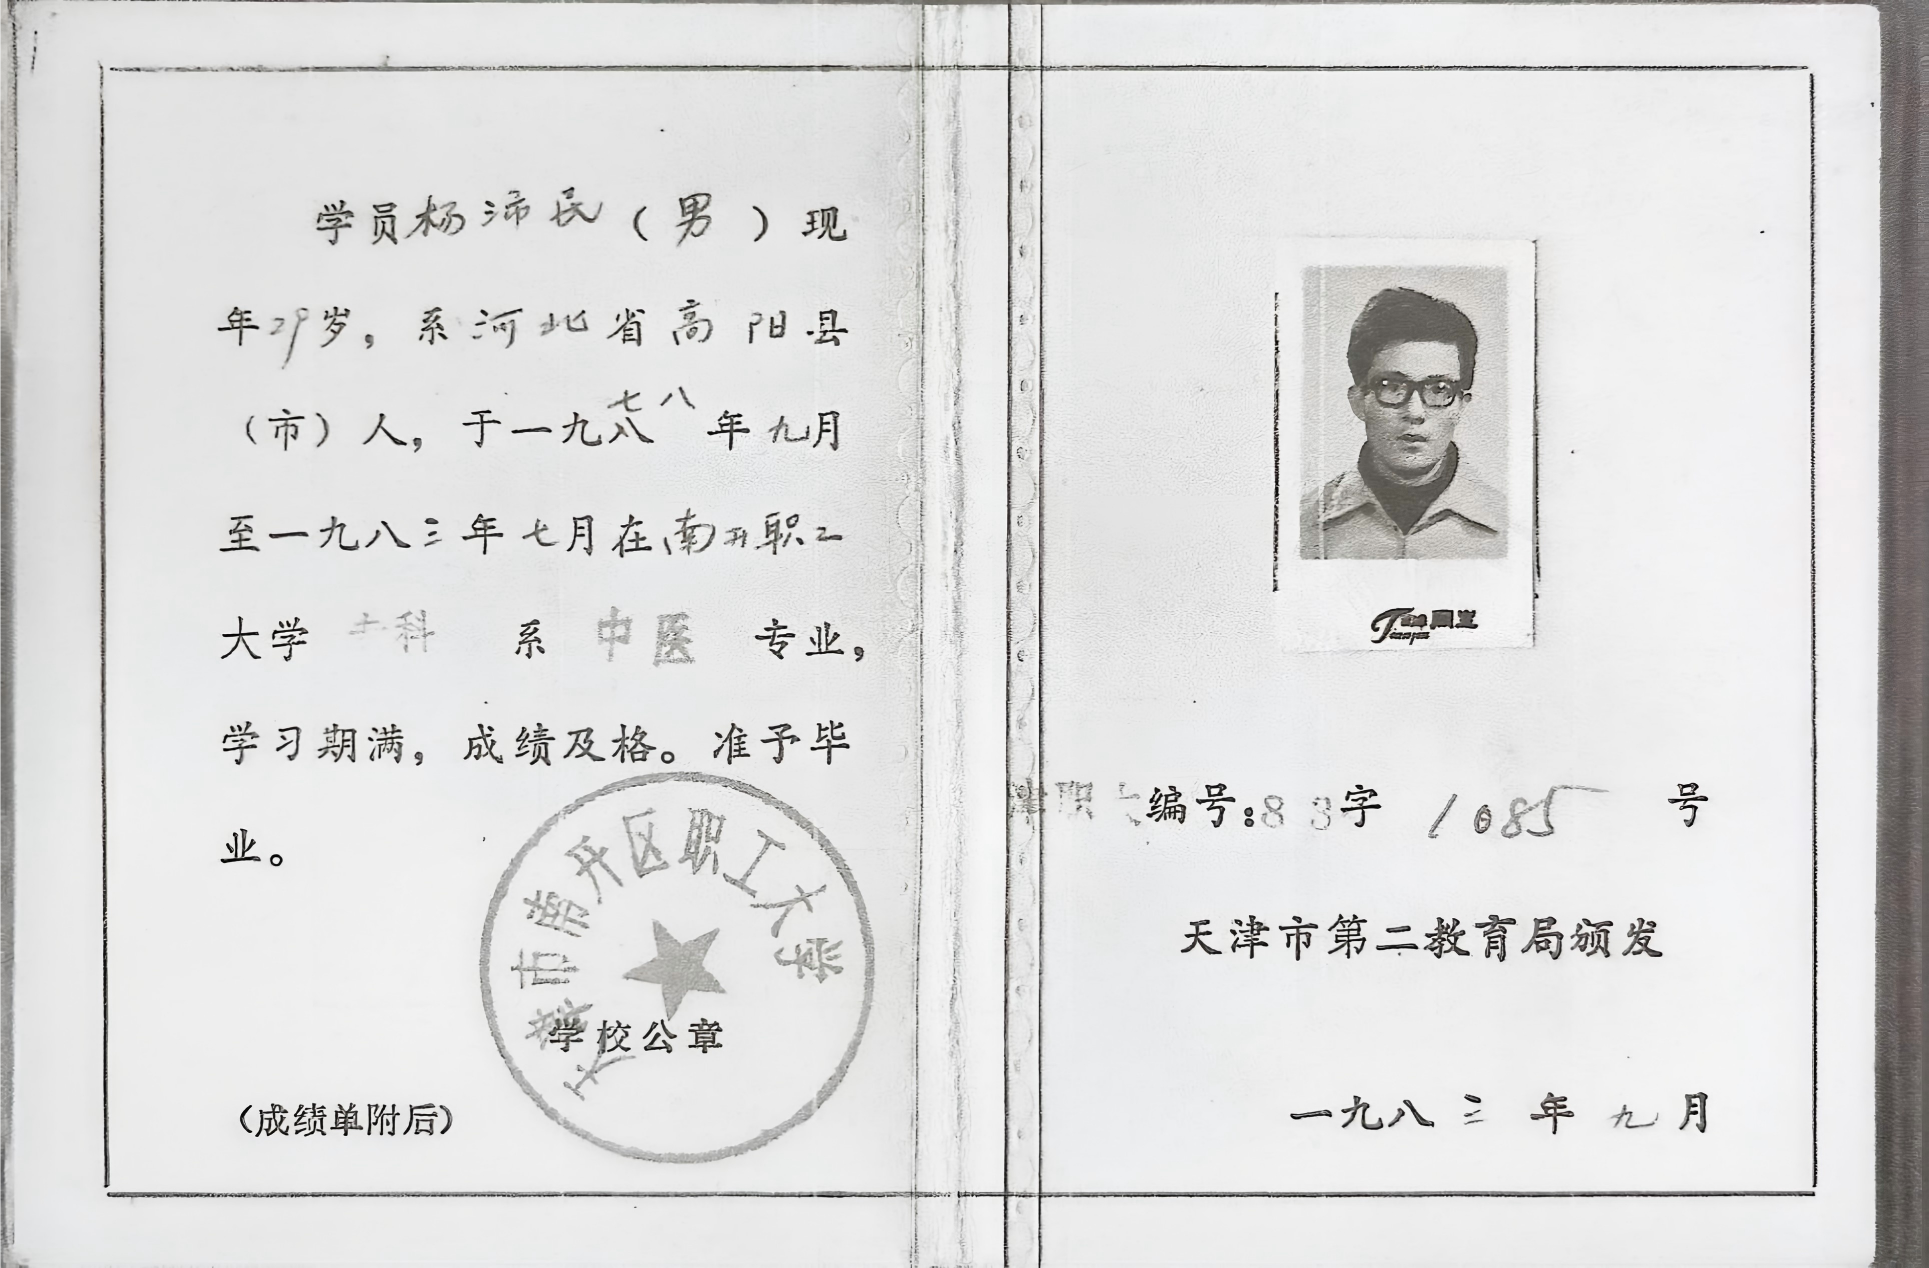 学员杨沛民（男）现
年29岁，系河北省高阳县
（市）人，于一九七八年九月
至一九八三年七月在南开职工
大学 科 系 中医 专业，
学习期满，成绩及格。准予毕
业。
天津市南开区职工大学
学校公章
（成绩单附后）
津职 编号:83字 1085 号
天津市第二教育局颁发
一九八三年九月